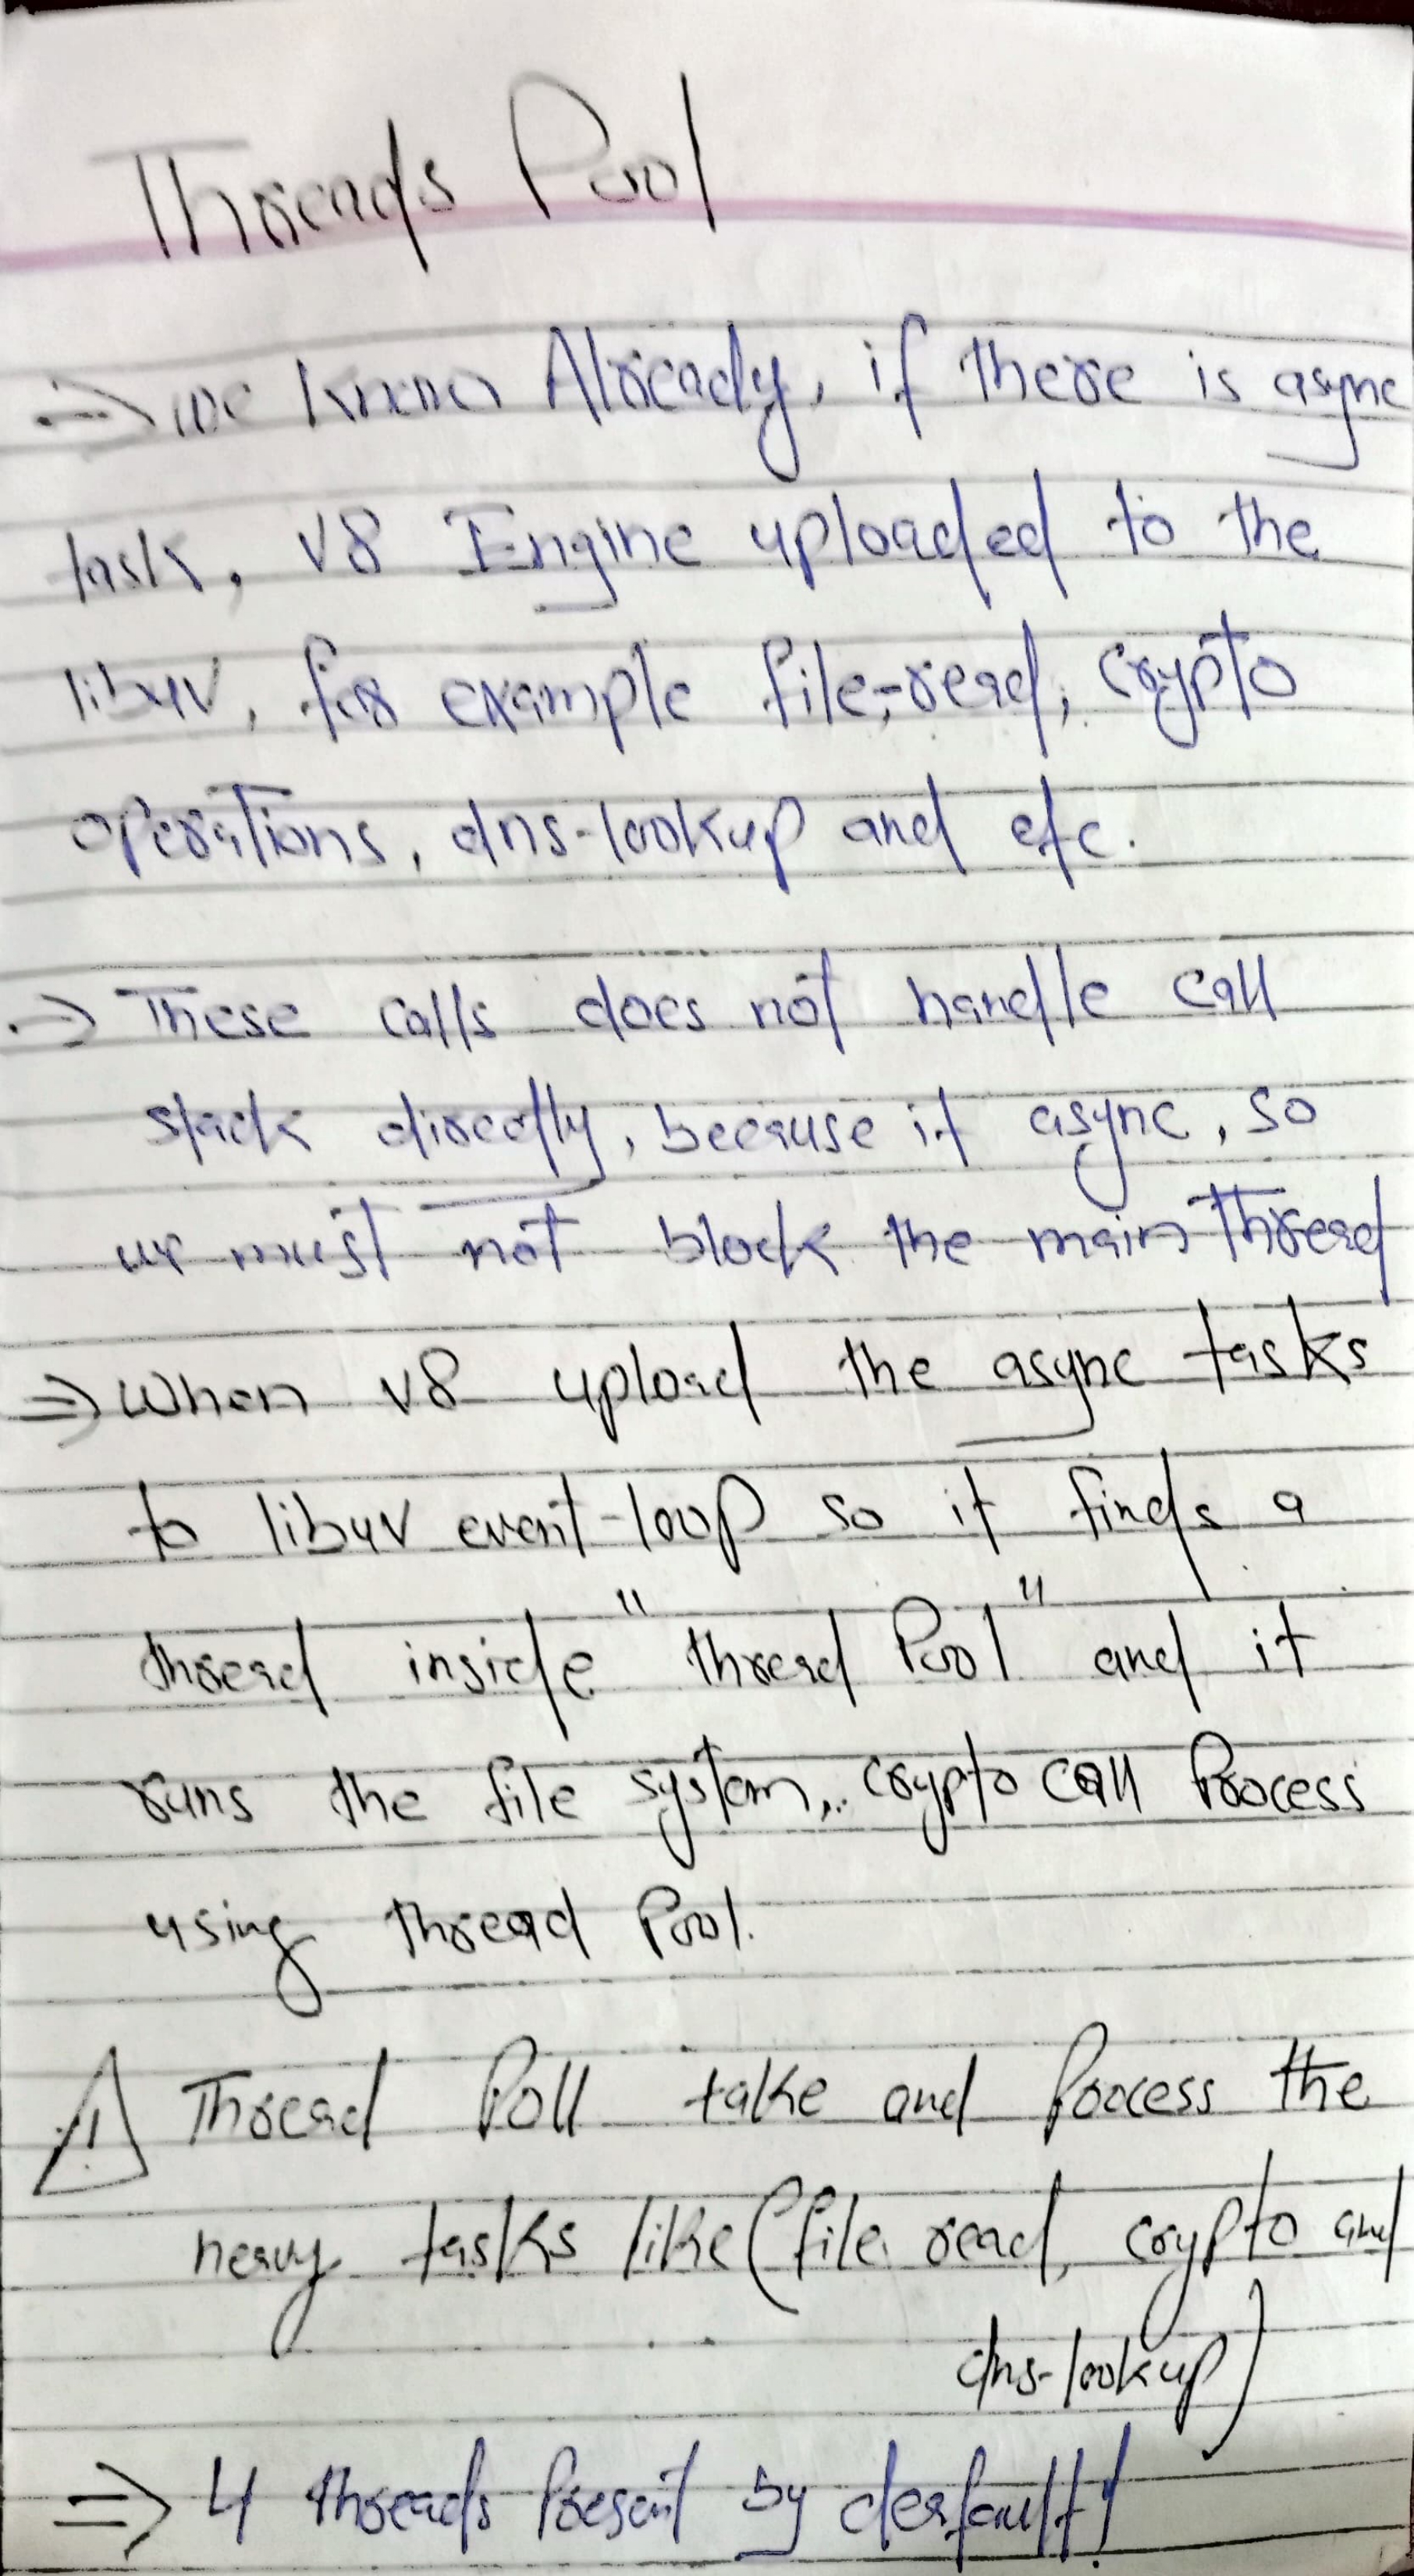 Threads Pool
⇒ we know Already, if there is async
task, V8 Engine uploaded to the
libuv, for example file-read, crypto
operations, dns-lookup and etc.
⇒ These calls does not handle call
stack directly, because it async, so
we must not block the main thread
⇒ When V8 upload the async tasks
to libuv event-loop so it finds a
thread inside "thread Pool" and it
runs the file system, crypto call Process
using thread Pool.
⚠ Thread Poll take and Process the
heavy tasks like (file read, crypto and
dns-lookup)
⇒ 4 threads Present by desfault!